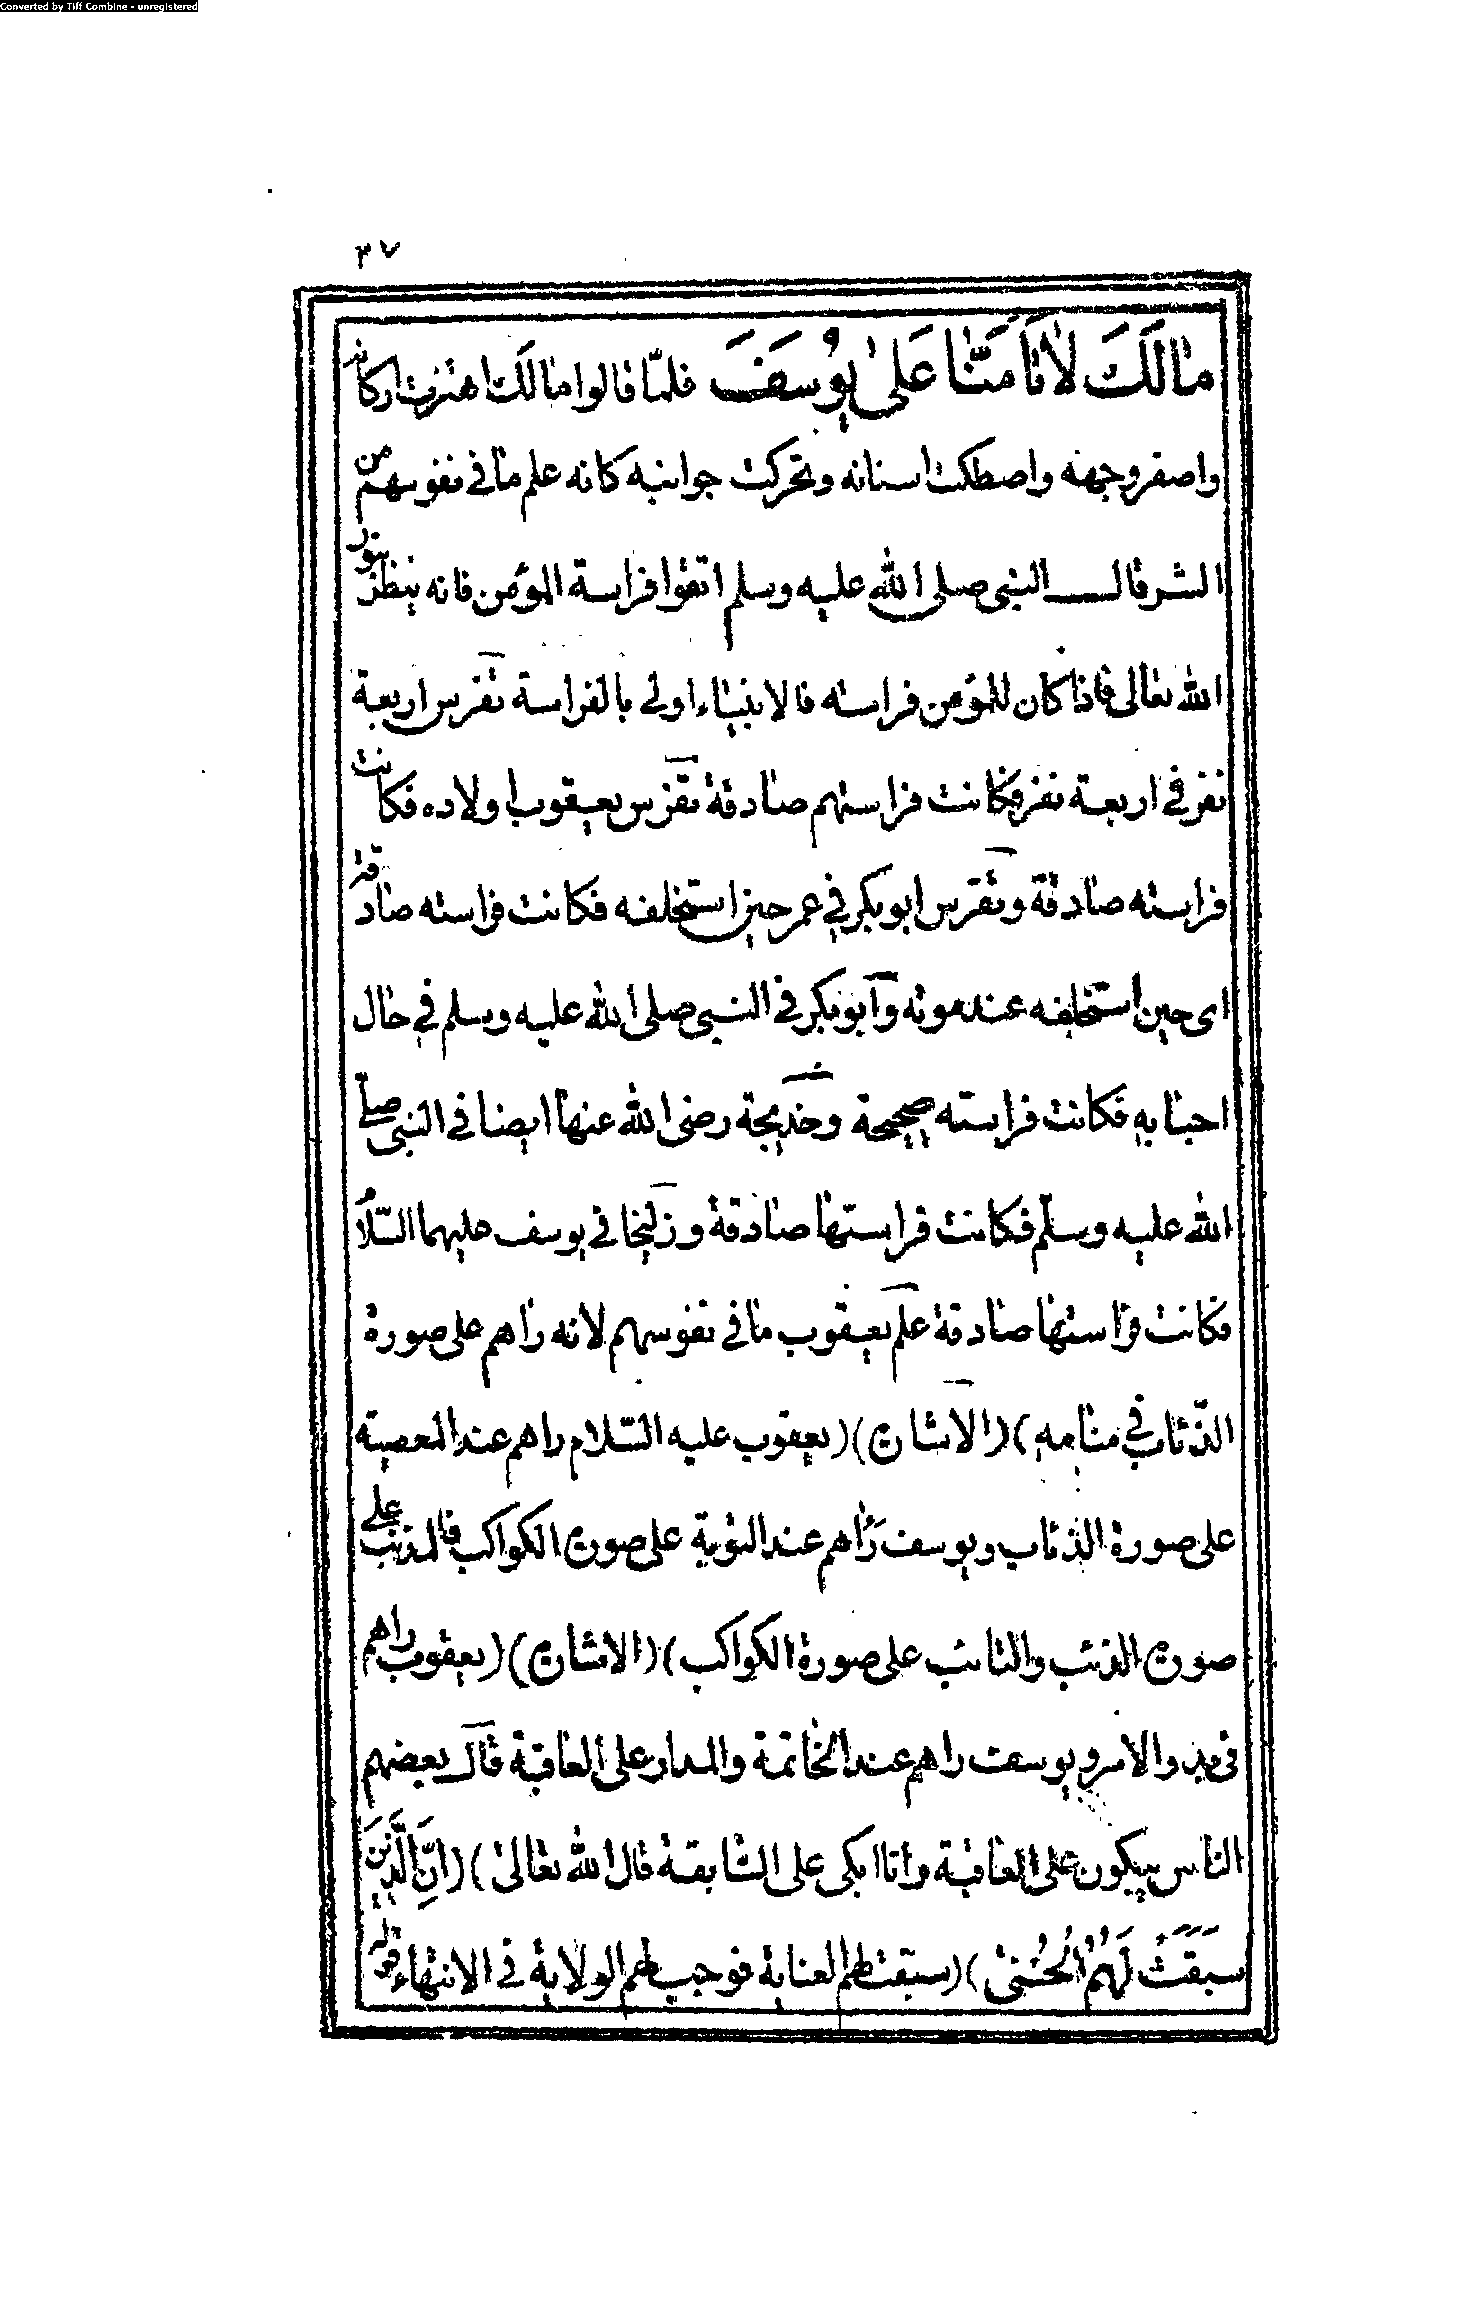 Converted by Tiff Combine - unregistered
٣٧
مٰالَكَ لاٰتَاْمَنّٰا عَلىٰ يُوسَفَ فلمّا قالوا مالك اهتزت اركانه
واصفر وجهه واصطكت اسنانه وتحركت جوانبه كانه علم ما في نفوسهم من
الشر قال النبي صلى الله عليه وسلم اتقوا فراسة المؤمن فانه ينظر بنور
الله تعالى فاذا كان للمؤمن فراسته فالانبياء اولى بالفراسة تفرس اربعة
نفر في اربعة نفر فكانت فراستهم صادقة تفرس يعقوب اولاده فكانت
فراسته صادقة وتفرس ابو بكر في عمر حين استخلفه فكانت فراسته صادقة
اى حين استخلفه عند موته وابو بكر في النبي صلى الله عليه وسلم في حال
احبابه فكانت فراسته صحيحة وخديجة رضى الله عنها ايضا في النبى صلى
الله عليه وسلّم فكانت فراستها صادقة وزليخا في يوسف عليهما السّلام
فكانت فراستها صادقة علم يعقوب ما في نفوسهم لانه راهم على صورة
الذّئاب في منامه) (الاشارة) (يعقوب عليه السّلام راهم عند المعصية
على صورة الذئاب ويوسف رَاٰهم عند التوبة على صورة الكواكب فالمذنب على
صورة الذئب والتائب على صورة الكواكب) (الاشارة) (يعقوب راهم
في بدو الامر ويوسف راهم عند الخاتمة والمدار على العاقبة قال بعضهم
الناس يبكون على العاقبة وانا ابكى على السّابقة قال الله تعالى) (اِنَّ الَّذِينَ
سَبَقَتْ لَهُمْ الْحُسْنىٰ) (سبقت لهم العناية فوجب لهم الولاية في الانتهاء قوله